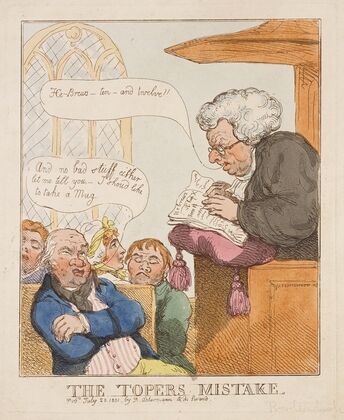 He-Brews - ten - and twelve!!
And no bad stuff either
let me tell you - I shou'd like
to take a Mug
THE TOPERS MISTAKE.
Pubd. July 25. 1801, by R. Ackermann
Strand.